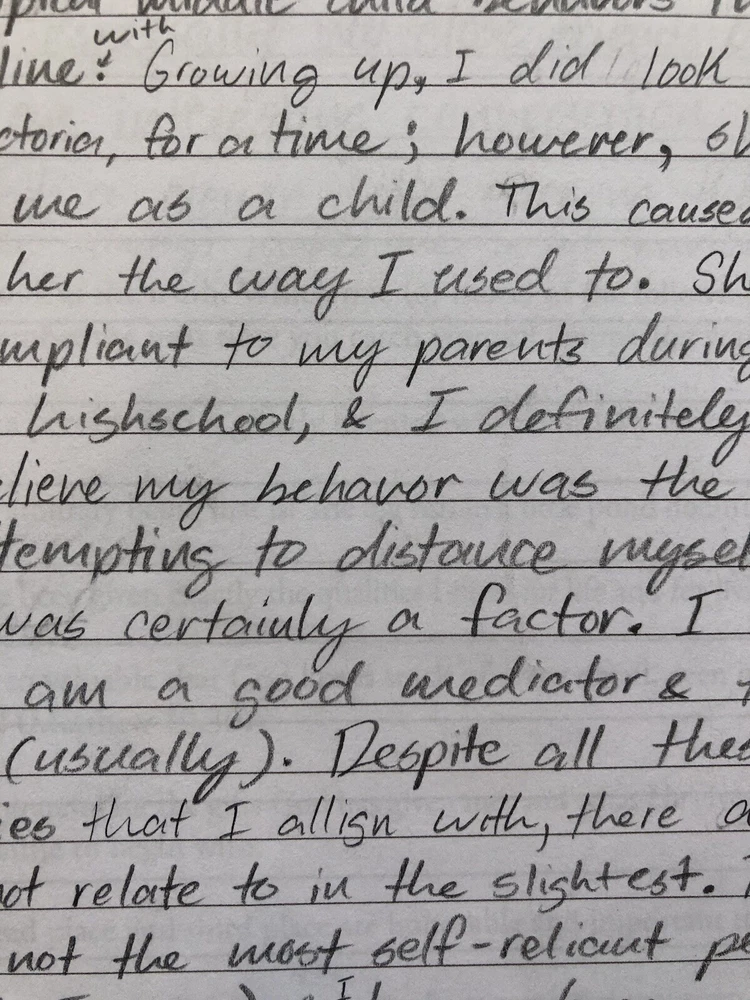 middle child behaviors
with
line. Growing up, I did look
ctoria, for a time; however, sh
me as a child. This caused
her the way I used to. Sh
mpliant to my parents during
highschool, & I definitely
elieve my behavor was the
tempting to distance mysel
was certainly a factor. I
am a good mediator &
(usually). Despite all thes
ies that I allign with, there a
not relate to in the slightest.
not the most self-reliant pe